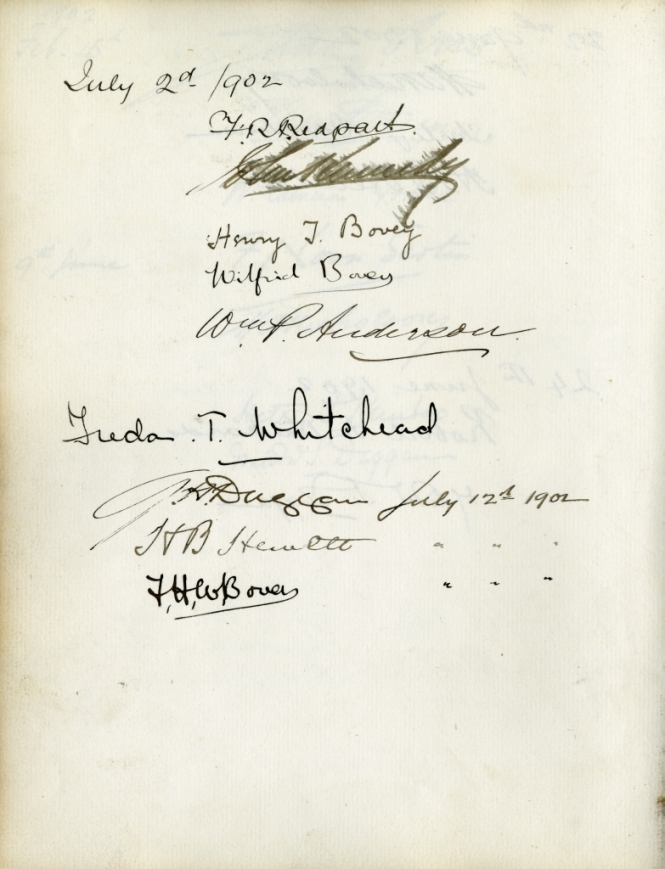 July 2d 1902
F. R. Redpath
John Kennedy
Henry T. Bovey
Wilfrid Bovey
Wm P. Anderson.
Freda T. Whitehead
Duggan July 12th 1902
" " "
F, H, W Bovey " " "